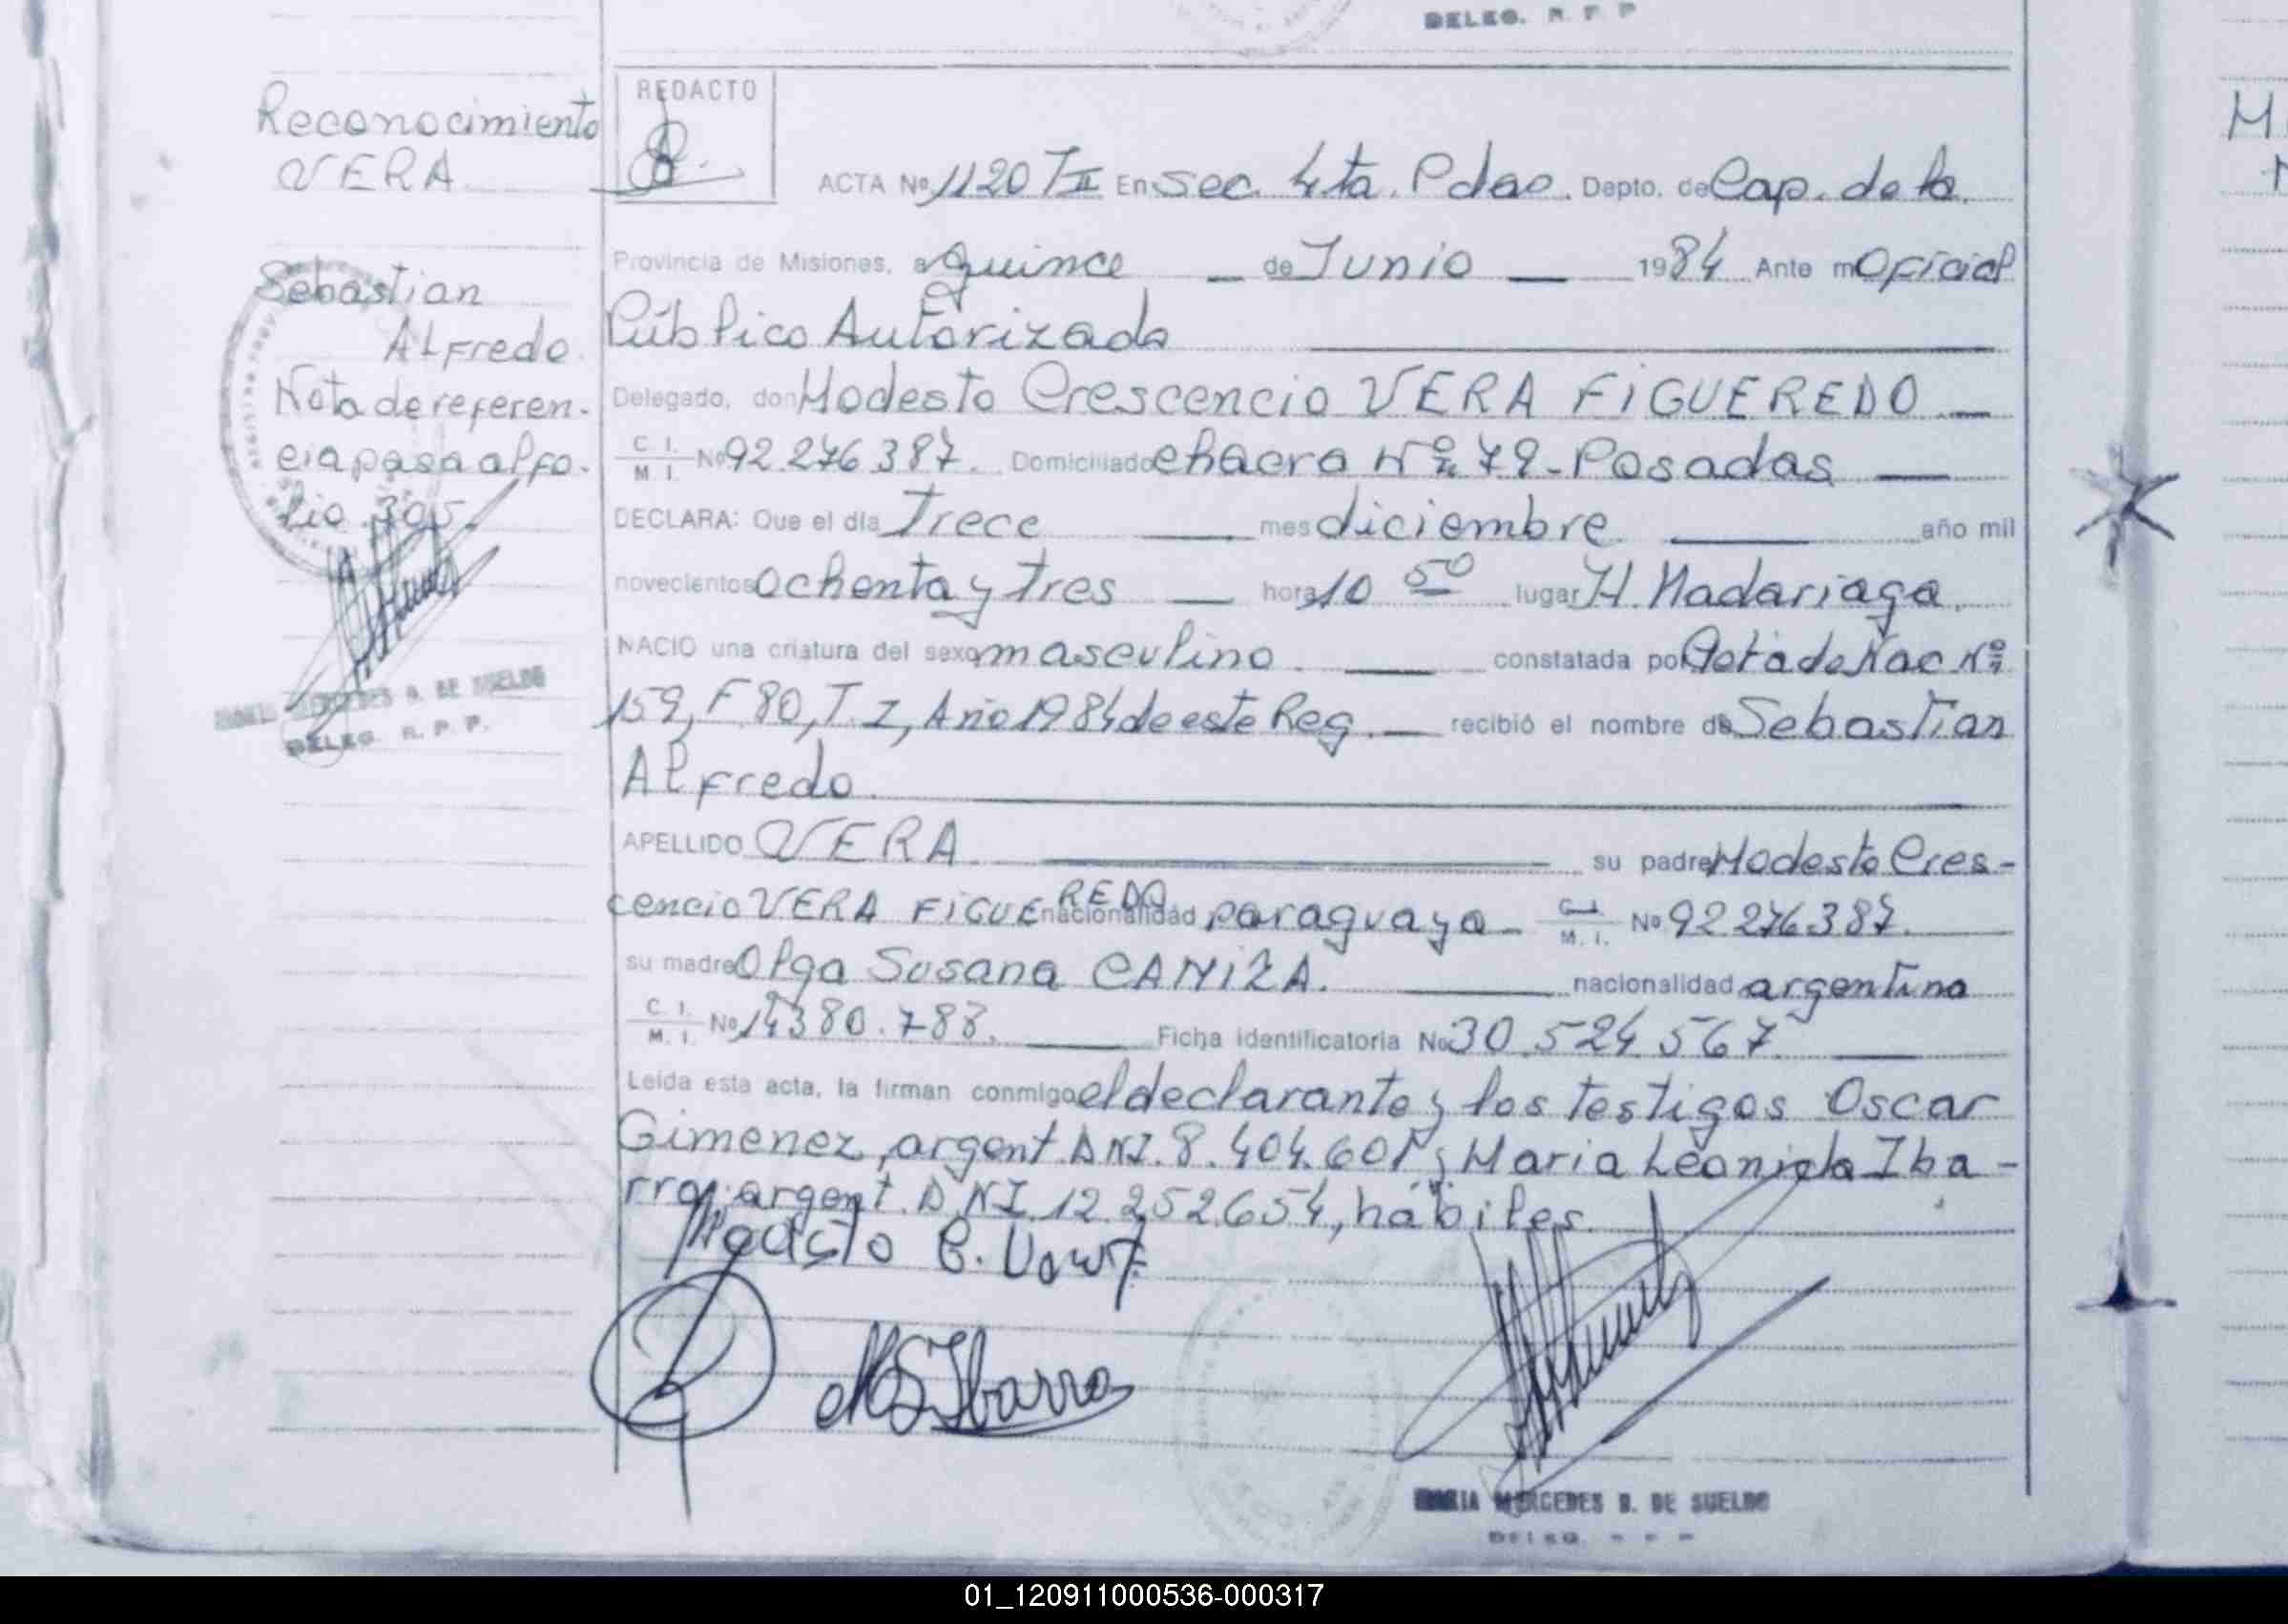 DELEG. R. P. P
Reconocimiento
VERA
Sebastian
Alfredo
Nota de referen-
cia pasa al fo-
lio 305.
MARIA MERCEDES B. DE SUELDO
DELEG. R. P. P.
REDACTO
ACTA Nº 1120 T II En Sec. 4ta. Pdas. Depto. de Cap. de la
Provincia de Misiones, a quince de Junio 1984 Ante mi Oficial
Público Autorizado
Delegado, don Modesto Crescencio VERA FIGUEREDO
C. I. M. I. Nº 92.276.387. Domiciliado chacra Nº 79 - Posadas
DECLARA: Que el día Trece mes diciembre año mil
novecientos ochenta y tres hora 10 50 lugar H. Madariaga.
NACIO una criatura del sexo masculino constatada por Acta de Nac Nº
159, F 80, T. I, Año 1984 de este Reg. recibió el nombre de Sebastian
Alfredo.
APELLIDO VERA su padre Modesto Cres-
cencio VERA FIGUEREDO nacionalidad paraguaya - C. I. M. I. Nº 92.276.387.
su madre Olga Susana CANIZA. nacionalidad argentina
C. I. M. I. Nº 14.380.788. Ficha identificatoria Nº 30.524.567.
Leída esta acta, la firman conmigo el declarante y los testigos Oscar
Gimenez, argent. DNI. 8.404.601 y Maria Leonida Iba-
rra, argent. DNI. 12.252.654, hábiles.
Modesto C. Vera F
Ibarra
MARIA MERCEDES B. DE SUELDO
DELEG. R. P. P
01_120911000536-000317